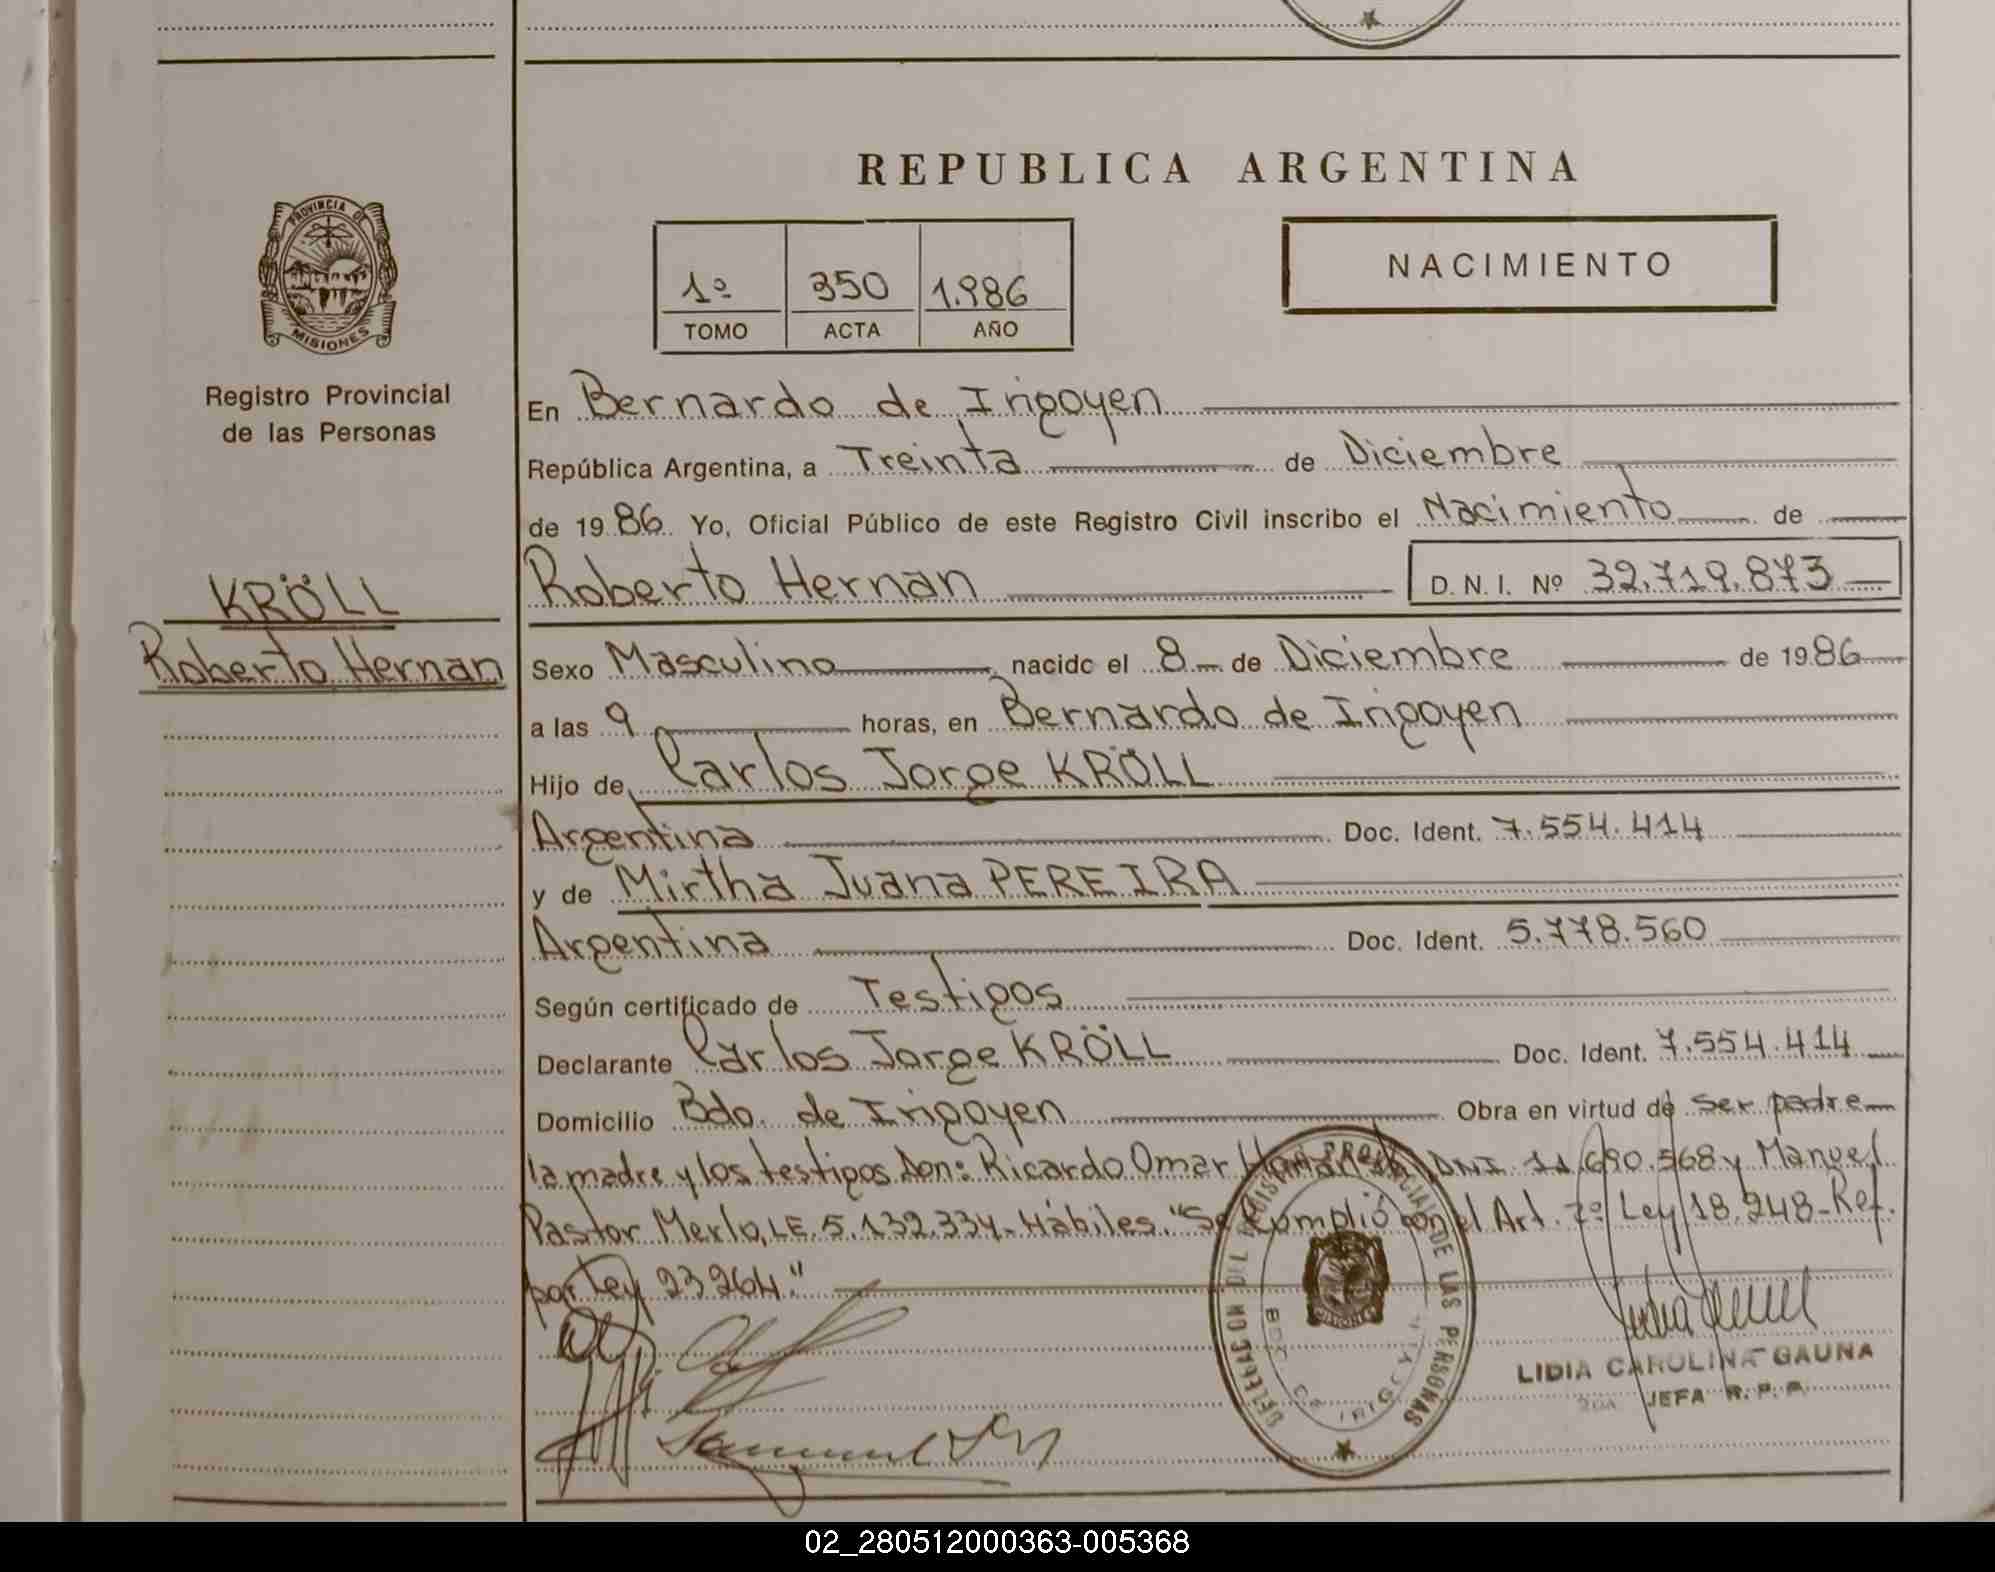 REPUBLICA ARGENTINA
PROVINCIA DE
MISIONES
Registro Provincial
de las Personas
1º 350 1.986
TOMO ACTA AÑO
NACIMIENTO
En Bernardo de Irigoyen
República Argentina, a Treinta de Diciembre
de 1986 Yo, Oficial Público de este Registro Civil inscribo el Nacimiento de
KRÖLL
Roberto Hernan
Roberto Hernan D.N.I. Nº 32.719.873
Sexo Masculino nacido el 8 de Diciembre de 1986
a las 9 horas, en Bernardo de Irigoyen
Hijo de Carlos Jorge KRÖLL
Argentina Doc. Ident. 7.554.414
y de Mirtha Juana PEREIRA
Argentina Doc. Ident. 5.778.560
Según certificado de Testigos
Declarante Carlos Jorge KRÖLL Doc. Ident. 7.554.414
Domicilio Bdo. de Irigoyen Obra en virtud de ser padre
la madre y los testigos Don: Ricardo Omar DNI 11.690.568 y Manuel
Pastor Merlo, LE. 5.132.334- Hábiles. "Se Cumplió con el Art. 7º Ley 18.248-Ref.
por Ley 23264."
DELEGACION DEL REGISTRO PROVINCIAL DE LAS PERSONAS
BDO. DE IRIGOYEN
MISIONES
LIDIA CAROLINA GAUNA
JEFA R.P.P.
02_280512000363-005368